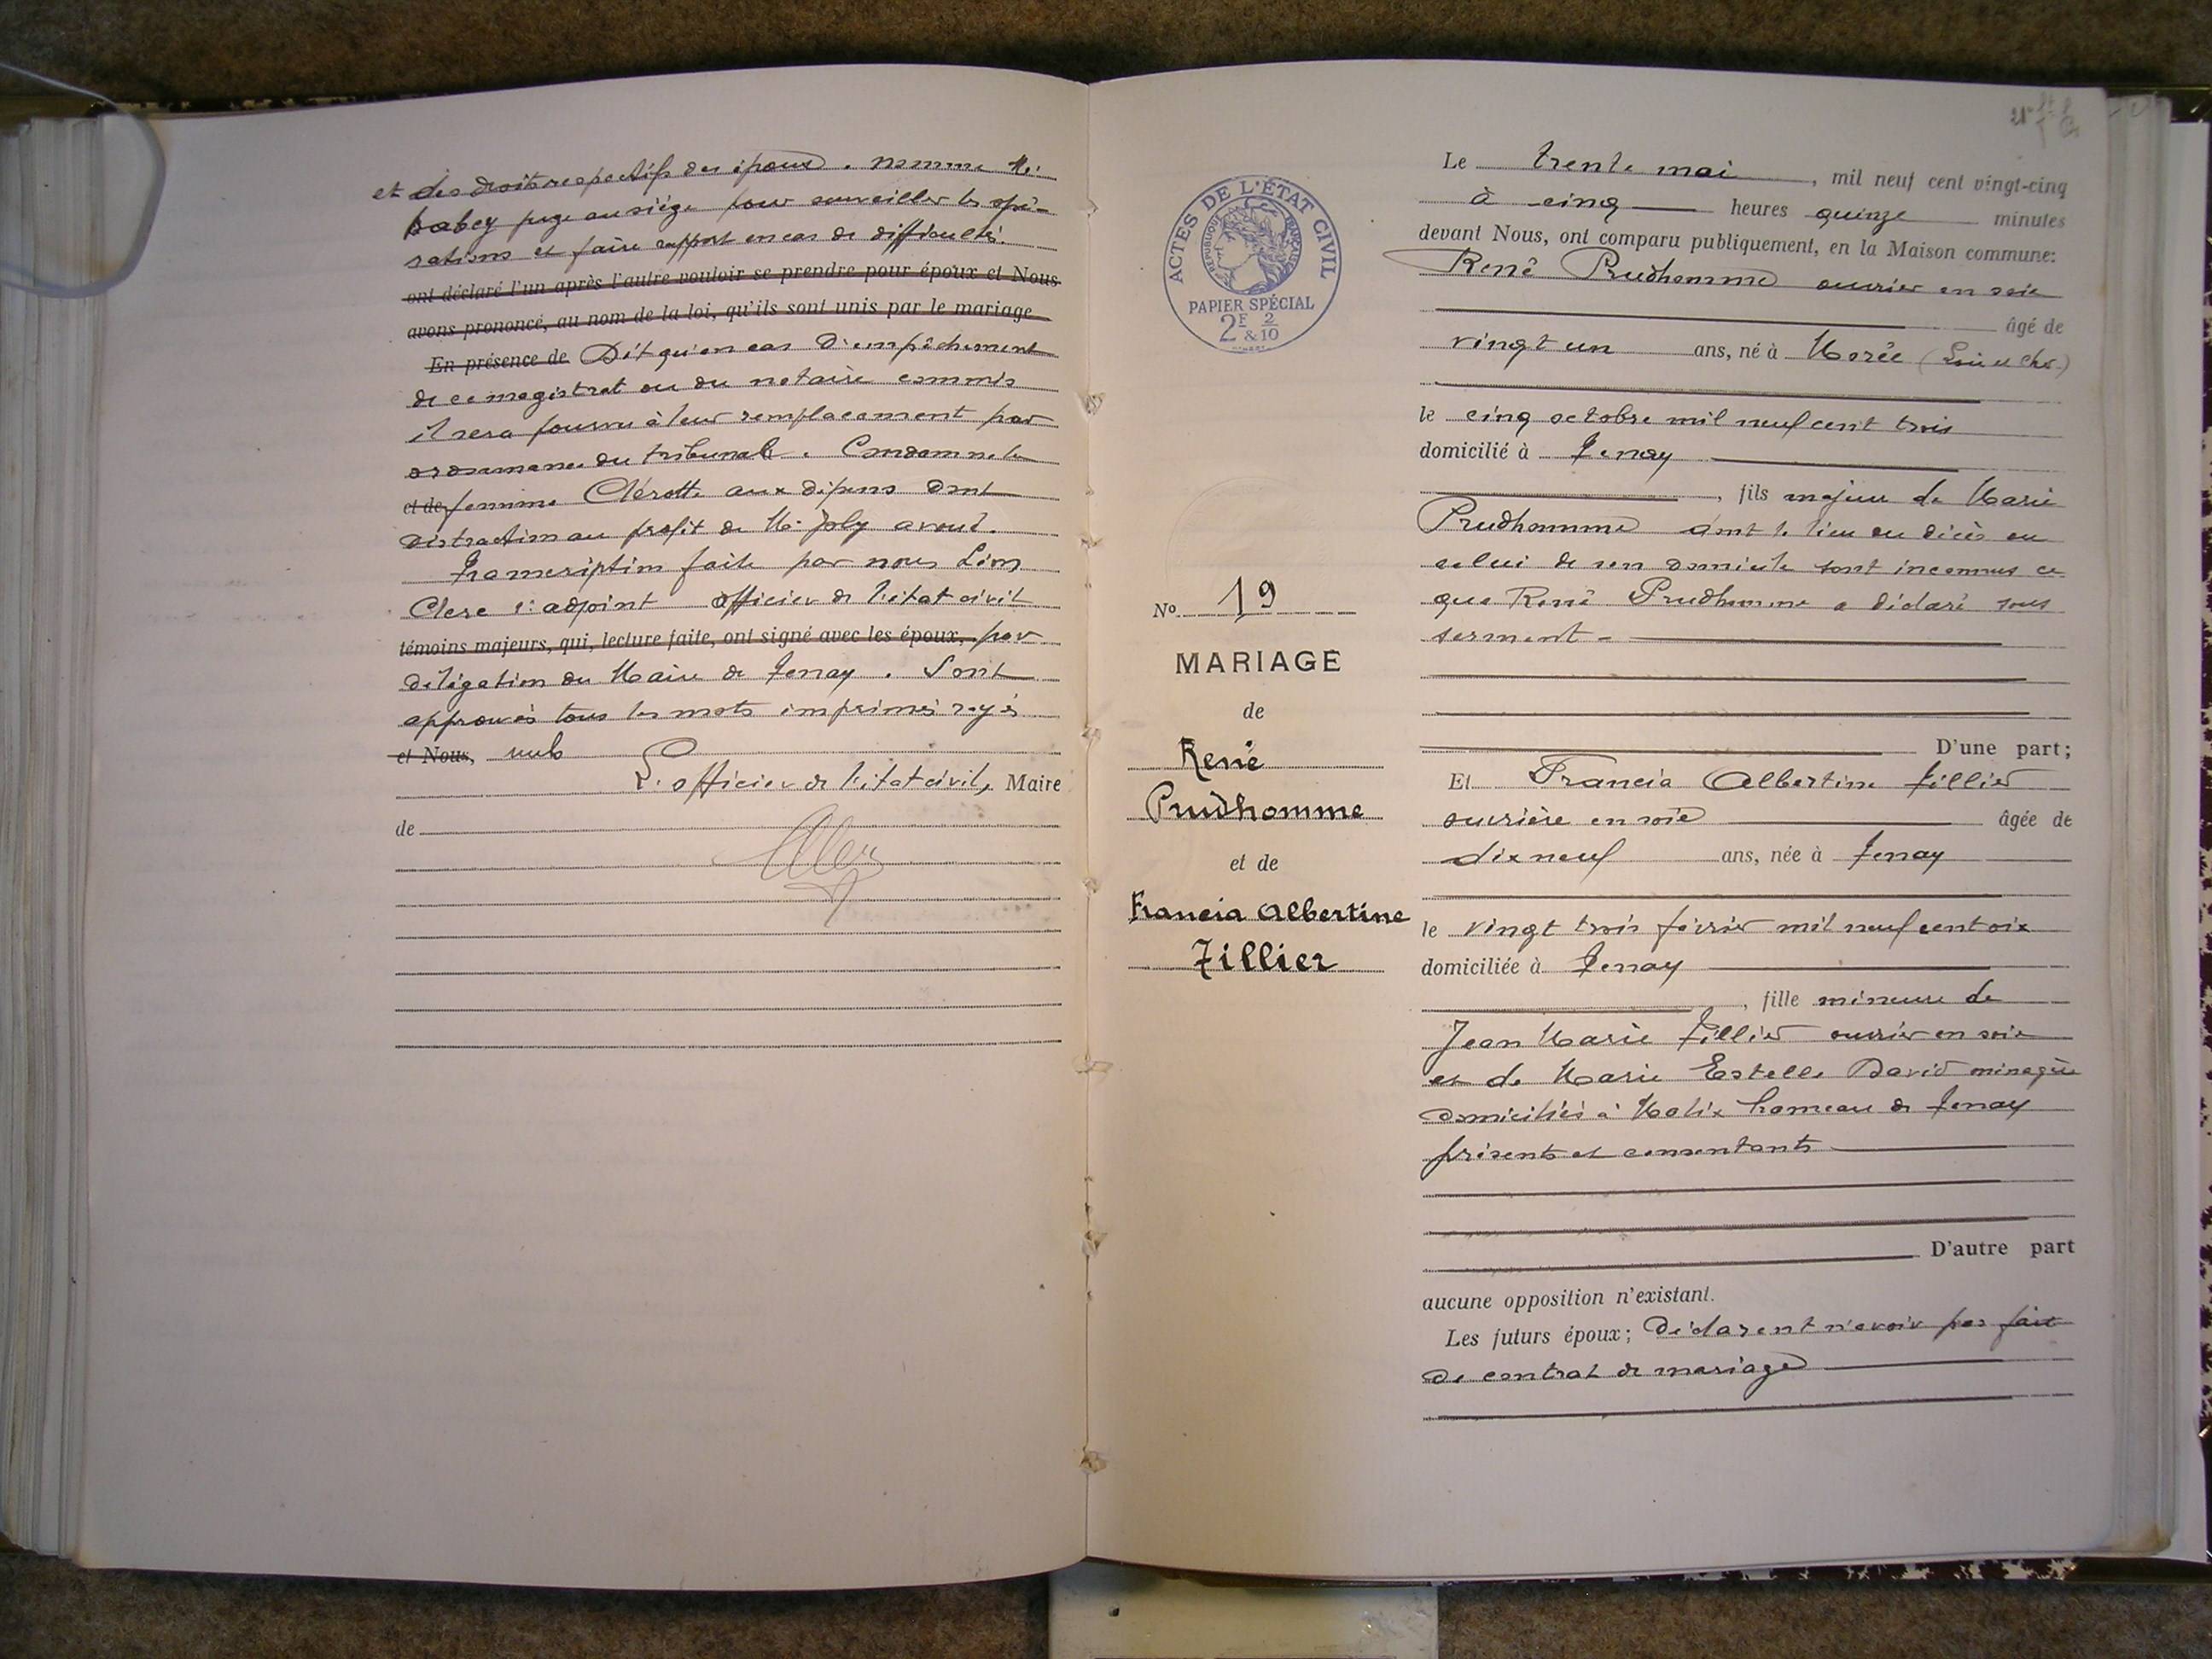 et des droits respectifs des époux. nomme Mr.
Babey juge au siège pour surveiller les opé-
rations et faire rapport en cas de difficultés.
ont déclaré l'un après l'autre vouloir se prendre pour époux et Nous
avons prononcé, au nom de la loi, qu'ils sont unis par le mariage
En présence de Dit qu'en cas d'empêchement
de ce magistrat ou du notaire commis
il sera pourvu à leur remplacement par
ordonnance du tribunal. Condamne la
et de femme Clérotte aux dépens dont
distraction au profit de Me Joly avoué.
Transcription faite par nous Léon
Clerc 1er adjoint officier de l'état civil
témoins majeurs, qui, lecture faite, ont signé avec les époux, par
délégation du Maire de Tenay. Sont
approuvés tous les mots imprimés rayés
et Nous, nuls
L'officier de l'état civil, Maire
de
ACTES DE L'ÉTAT CIVIL
RÉPUBLIQUE FRANÇAISE
PAPIER SPÉCIAL
2F & 2/10
No 19
MARIAGE
de
René
Prudhomme
et de
Francia Albertine
Tillier
Le trente mai, mil neuf cent vingt-cinq
à cinq heures quinze minutes
devant Nous, ont comparu publiquement, en la Maison commune:
René Prudhomme ouvrier en soie
âgé de
vingt un ans, né à Morée (Loir et Cher)
le cinq octobre mil neuf cent trois
domicilié à Tenay
, fils majeur de Marie
Prudhomme dont le lieu du décès ou
celui de son domicile sont inconnus ce
que René Prudhomme a déclaré sous
serment -
D'une part;
Et Francia Albertine Tillier
ouvrière en soie âgée de
dix neuf ans, née à Tenay
le vingt trois février mil neuf cent six
domiciliée à Tenay
, fille mineure de
Jean Marie Tillier ouvrier en soie
et de Marie Estelle David ménagère
domiciliés à Malix hameau de Tenay
présents et consentants
D'autre part
aucune opposition n'existant.
Les futurs époux; déclarent n'avoir pas fait
de contrat de mariage